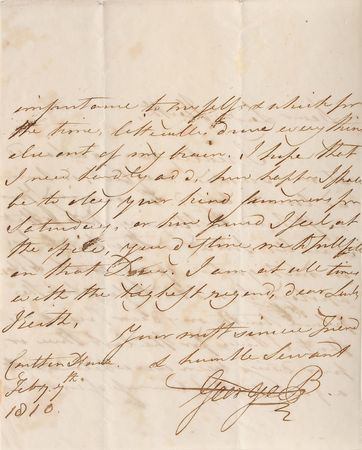 importance to myself & which for
the time, litterally drove every thing
else out of my brain. I hope that
I need hardly add, how happy I shall
be to obey your kind summons for
Saturday, or how proud I feel, at
the
you destine me
on that I am at all times
with the highest regard, dear Lady
Heath,
Your most sincere Friend
& humble Servant
Carlton House
Feby 7th.
1810.
George P